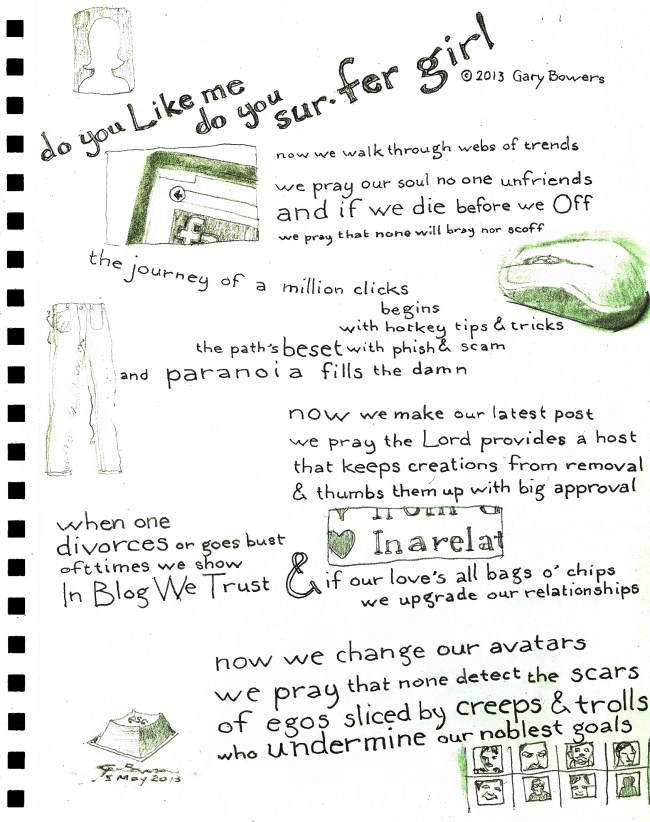 do you Like me
do you
sur.fer girl
© 2013 Gary Bowers
now we walk through webs of trends
we pray our soul no one unfriends
and if we die before we Off
we pray that none will bray nor scoff
the journey of a million clicks
begins
with hotkey tips & tricks
the path's beset with phish & scam
and paranoia fills the damn
now we make our latest post
we pray the Lord provides a host
that keeps creations from removal
& thumbs them up with big approval
when one
divorces or goes bust
ofttimes we show
In Blog We Trust
In a relat
& if our love's all bags o' chips
we upgrade our relationships
now we change our avatars
we pray that none detect the scars
of egos sliced by creeps & trolls
who undermine our noblest goals
esc
5 May 2013